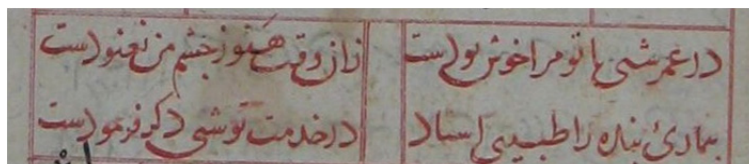 در عمر شبی با تو مرا خوش بودست
زان وقت هنوز چشم من نغنودست
بیماری بنده را طبیبی استاد
در خدمت تو شبی دگر فرمودست